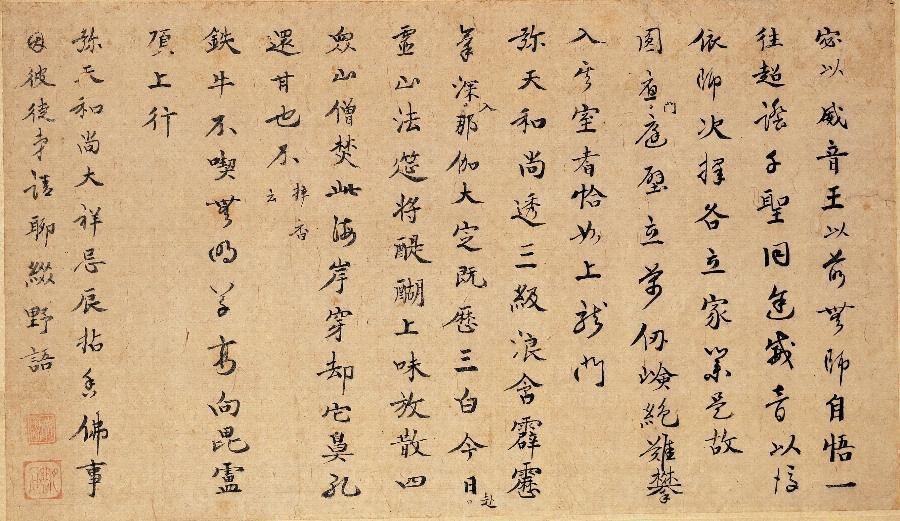 以威音王以前無師自悟一
往超詣千聖同途威音以後
依師次擇各立家業是故
門庭壁立萬仞嶮絶難攀
入其室者恰如上龍門
弥天和尚透三級浪奮霹靂
氣深入那伽大定既歴三白今日赴
霊山法筵将醍醐上味放散四
衆山僧焚此海岸穿却它鼻孔
還甘也不 挿香云
鉄牛不喫無明草直向毘盧
頂上行
弥天和尚大祥忌辰拈香佛事
因彼徒弟請聊綴野語